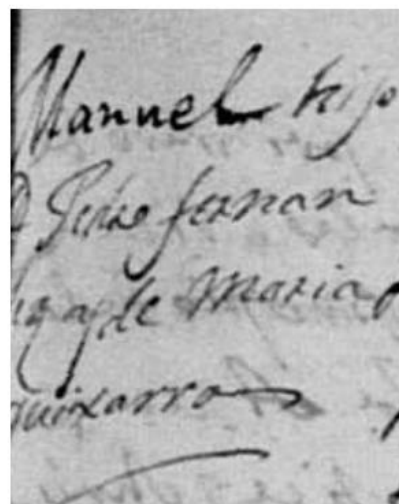 Manuel hijo
Pedro fernan
y de Maria
guixarro